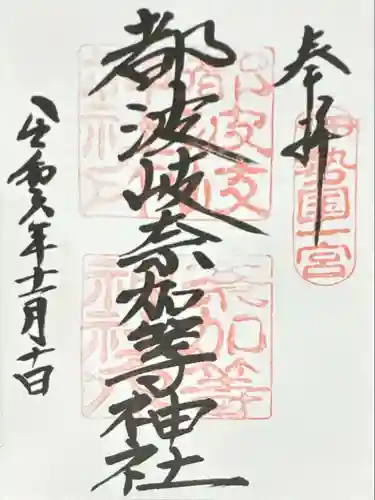 奉拝
伊勢國一宮
都波岐奈加等神社
令和六年十二月十日